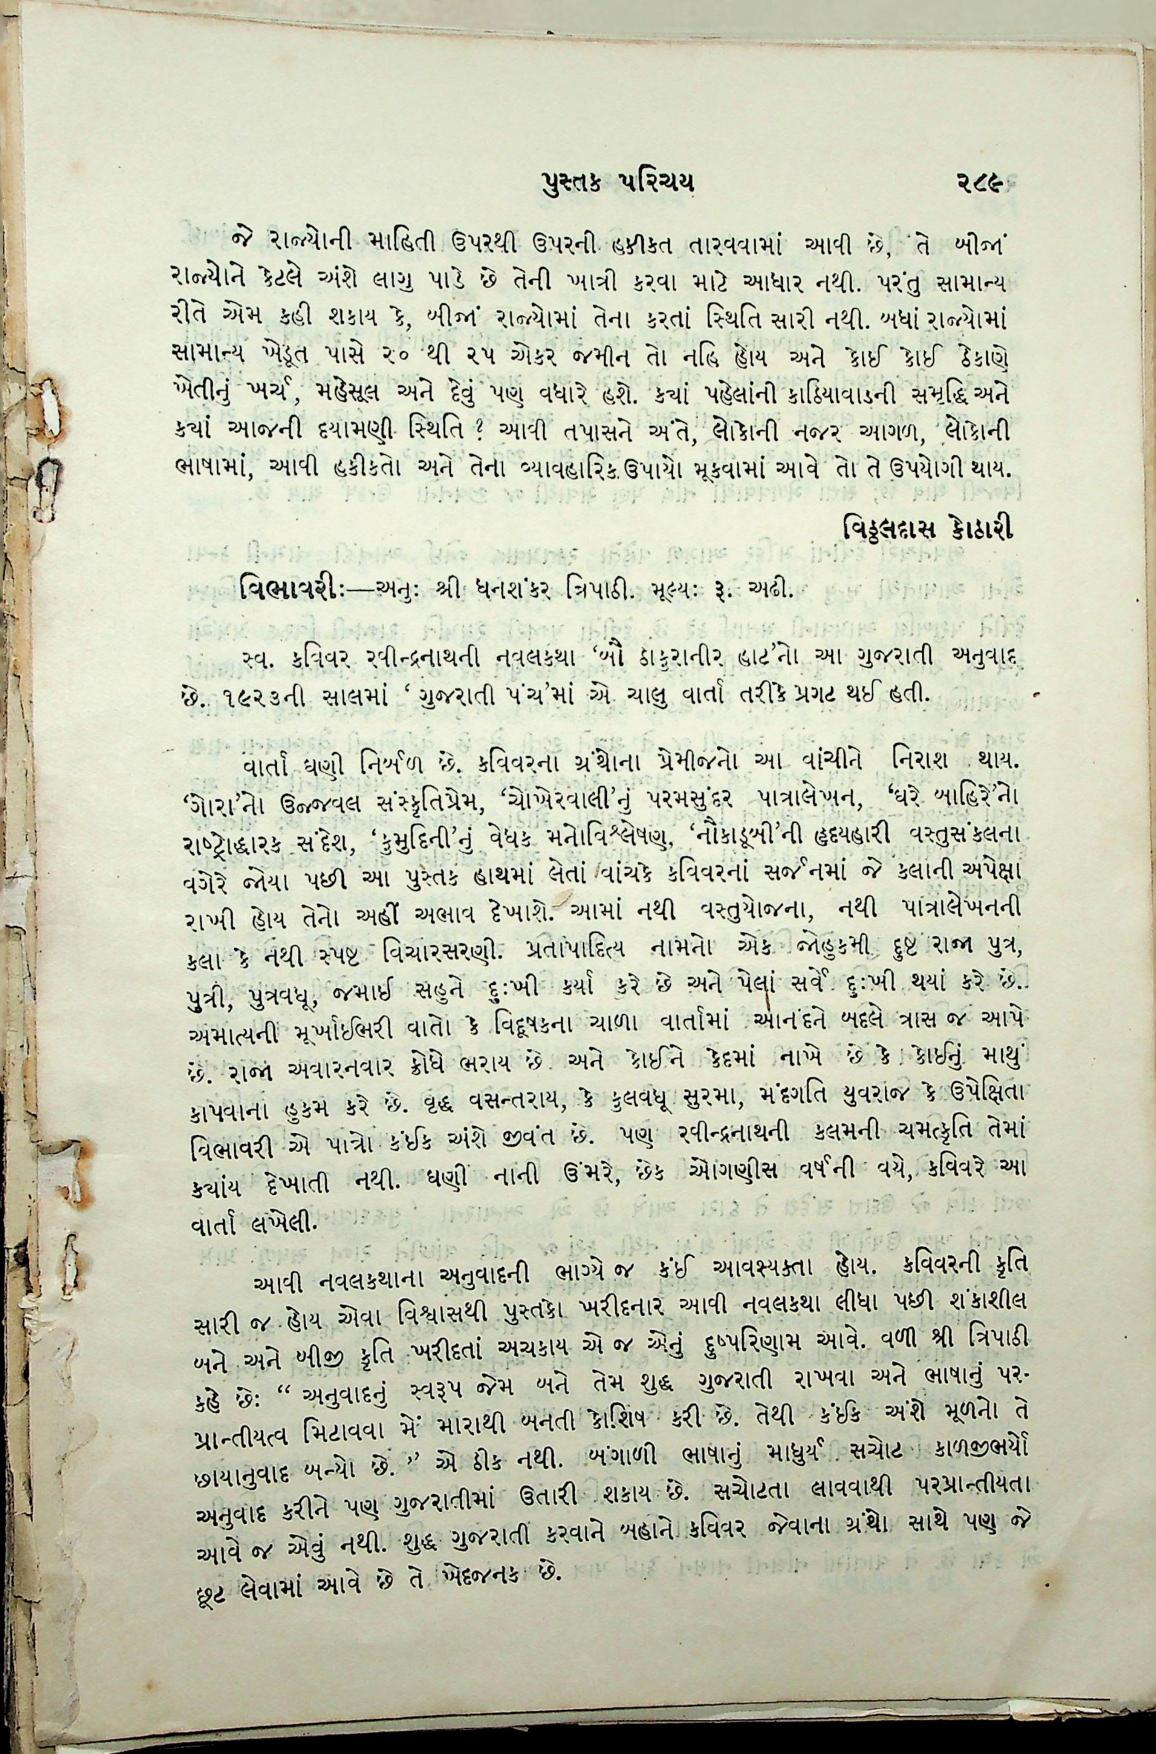 પુસ્તક પરિચય ૨૮૯
જે રાજ્યોની માહિતી ઉપરથી ઉપરની હકીકત તારવવામાં આવી છે, તે બીજાં
રાજ્યોને કેટલે અંશે લાગુ પાડે છે તેની ખાત્રી કરવા માટે આધાર નથી. પરંતુ સામાન્ય
રીતે એમ કહી શકાય કે, બીજાં રાજ્યોમાં તેના કરતાં સ્થિતિ સારી નથી. બધાં રાજ્યોમાં
સામાન્ય ખેડૂત પાસે ૨૦ થી ૨૫ એકર જમીન તો નહિ હોય અને કોઈ કોઈ ઠેકાણે
ખેતીનું ખર્ચ, મહેસૂલ અને દેવું પણ વધારે હશે. ક્યાં પહેલાંની કાઠિયાવાડની સમૃદ્ધિ અને
ક્યાં આજની દયામણી સ્થિતિ? આવી તપાસને અંતે, લોકોની નજર આગળ, લોકોની
ભાષામાં, આવી હકીકતો અને તેના વ્યાવહારિક ઉપાયો મૂકવામાં આવે તો તે ઉપયોગી થાય.
વિઠ્ઠલદાસ કોઠારી
વિભાવરી:—અનુ: શ્રી ધનશંકર ત્રિપાઠી. મૂલ્ય: રૂ. અઢી.
સ્વ. કવિવર રવીન્દ્રનાથની નવલકથા ‘બૌ ઠાકુરાનીર હાટ’નો આ ગુજરાતી અનુવાદ
છે. ૧૯૨૩ની સાલમાં ‘ ગુજરાતી પંચ’માં એ ચાલુ વાર્તા તરીકે પ્રગટ થઈ હતી.
વાર્તા ઘણી નિર્બળ છે. કવિવરના ગ્રંથોના પ્રેમીજનો આ વાંચીને નિરાશ થાય.
‘ગોરા’નો ઉજ્જવલ સંસ્કૃતિપ્રેમ, ‘ચોખેરવાલી’નું પરમસુંદર પાત્રાલેખન, ‘ઘરે બાહિરે’નો
રાષ્ટ્રોદ્ધારક સંદેશ, ‘કુમુદિની’નું વેધક મનોવિશ્લેષણ, ‘નૌકાડૂબી’ની હૃદયહારી વસ્તુસંકલના
વગેરે જોયા પછી આ પુસ્તક હાથમાં લેતાં વાંચકે કવિવરનાં સર્જનમાં જે કલાની અપેક્ષા
રાખી હોય તેનો અહીં અભાવ દેખાશે. આમાં નથી વસ્તુયોજના, નથી પાત્રાલેખનની
કલા કે નથી સ્પષ્ટ વિચારસરણી. પ્રતાપાદિત્ય નામનો એક જોહુકમી દુષ્ટ રાજા પુત્ર,
પુત્રી, પુત્રવધૂ, જમાઈ સહુને દુ:ખી કર્યા કરે છે અને પેલાં સર્વે દુ:ખી થયાં કરે છે.
અમાત્યની મૂર્ખાઈભરી વાતો કે વિદૂષકના ચાળા વાર્તામાં આનંદને બદલે ત્રાસ જ આપે
છે. રાજા અવારનવાર ક્રોધે ભરાય છે અને કોઈને કેદમાં નાખે છે કે કોઈનું માથું
કાપવાના હુકમ કરે છે. વૃદ્ધ વસન્તરાય, કે કુલવધૂ સુરમા, મંદગતિ યુવરાજ કે ઉપેક્ષિતા
વિભાવરી એ પાત્રો કંઈક અંશે જીવંત છે. પણ રવીન્દ્રનાથની કલમની ચમત્કૃતિ તેમાં
ક્યાંય દેખાતી નથી. ઘણી નાની ઉંમરે, છેક ઓગણીસ વર્ષની વયે, કવિવરે આ
વાર્તા લખેલી.
આવી નવલકથાના અનુવાદની ભાગ્યે જ કંઈ આવશ્યક્તા હોય. કવિવરની કૃતિ
સારી જ હોય એવા વિશ્વાસથી પુસ્તકો ખરીદનાર આવી નવલકથા લીધા પછી શંકાશીલ
બને અને બીજી કૃતિ ખરીદતાં અચકાય એ જ એનું દુષ્પરિણામ આવે. વળી શ્રી ત્રિપાઠી
કહે છે: “ અનુવાદનું સ્વરૂપ જેમ બને તેમ શુદ્ધ ગુજરાતી રાખવા અને ભાષાનું પર-
પ્રાન્તીયત્વ મિટાવવા મેં મારાથી બનતી કોશિષ કરી છે. તેથી કંઈક અંશે મૂળનો તે
છાયાનુવાદ બન્યો છે. ” એ ઠીક નથી. બંગાળી ભાષાનું માધુર્ય સચોટ કાળજીભર્યો
અનુવાદ કરીને પણ ગુજરાતીમાં ઉતારી શકાય છે. સચોટતા લાવવાથી પરપ્રાન્તીયતા
આવે જ એવું નથી. શુદ્ધ ગુજરાતી કરવાને બહાને કવિવર જેવાના ગ્રંથો સાથે પણ જે
છૂટ લેવામાં આવે છે તે ખેદજનક છે.